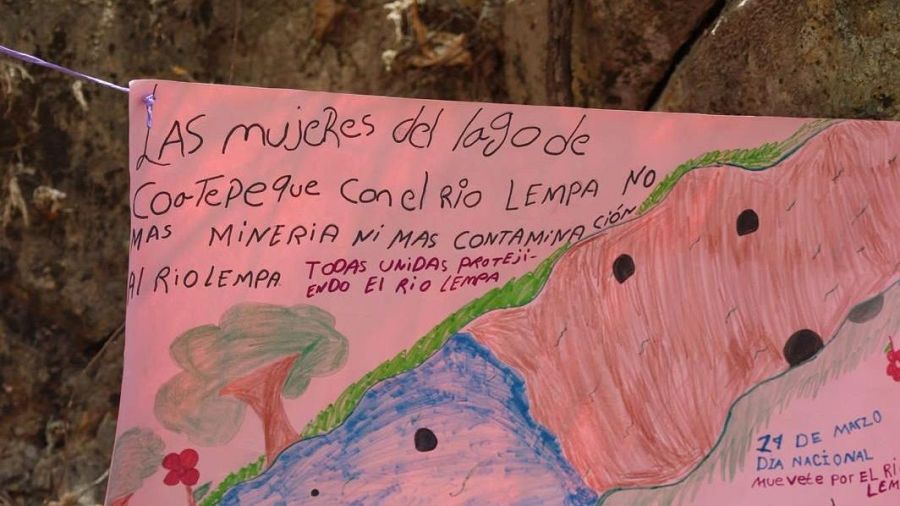 LAS mujeRes del lago de
CoaTepeque Con el RIO LEMPA NO
MAS MINERIA NI MAS CONTAMINACIÓN
Al RIO LEMPA
TODAS UNIDAS PROTEJI-
ENDO El RIO LEMPA
DE MARZO
DIA NACIONAL
MUEVETE POR EL RI
LEM